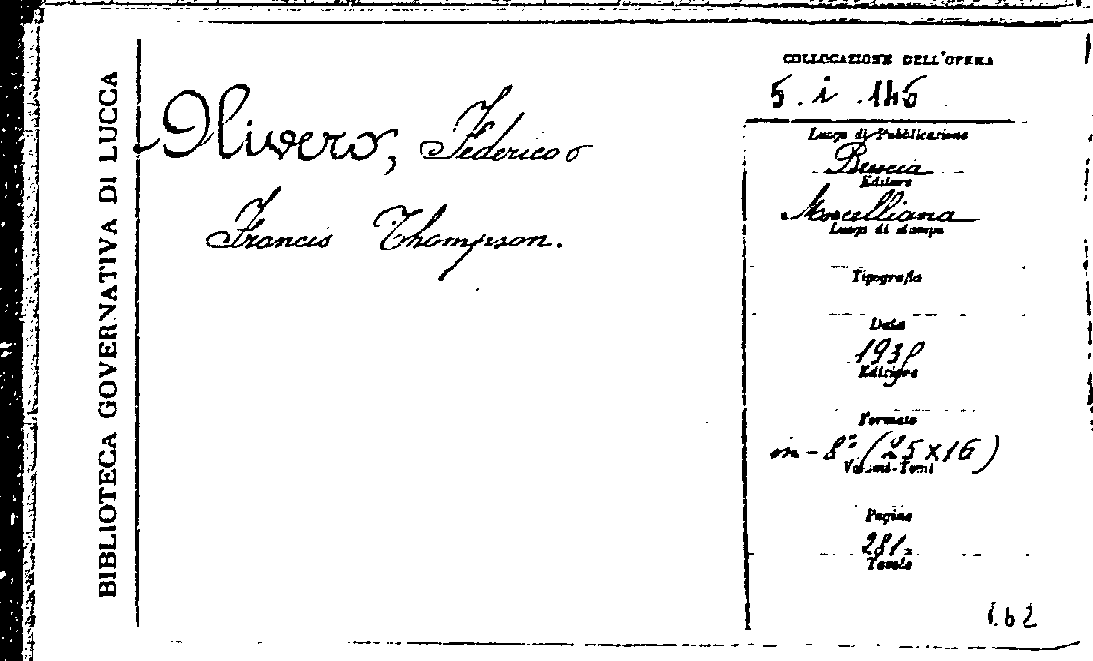 BIBLIOTECA GOVERNATIVA DI LUCCA
Olivero, Federico
Francis Thompson.
COLLOCAZIONE DELL'OPERA
5. i. 146
Luogo di Pubblicazione
Brescia
Editore
Morcelliana
Luogo di stampa
Tipografia
Data
1938
Edizione
Formato
in-8° (25x16)
Volumi-Tomi
Pagine
281.
Tavole
162